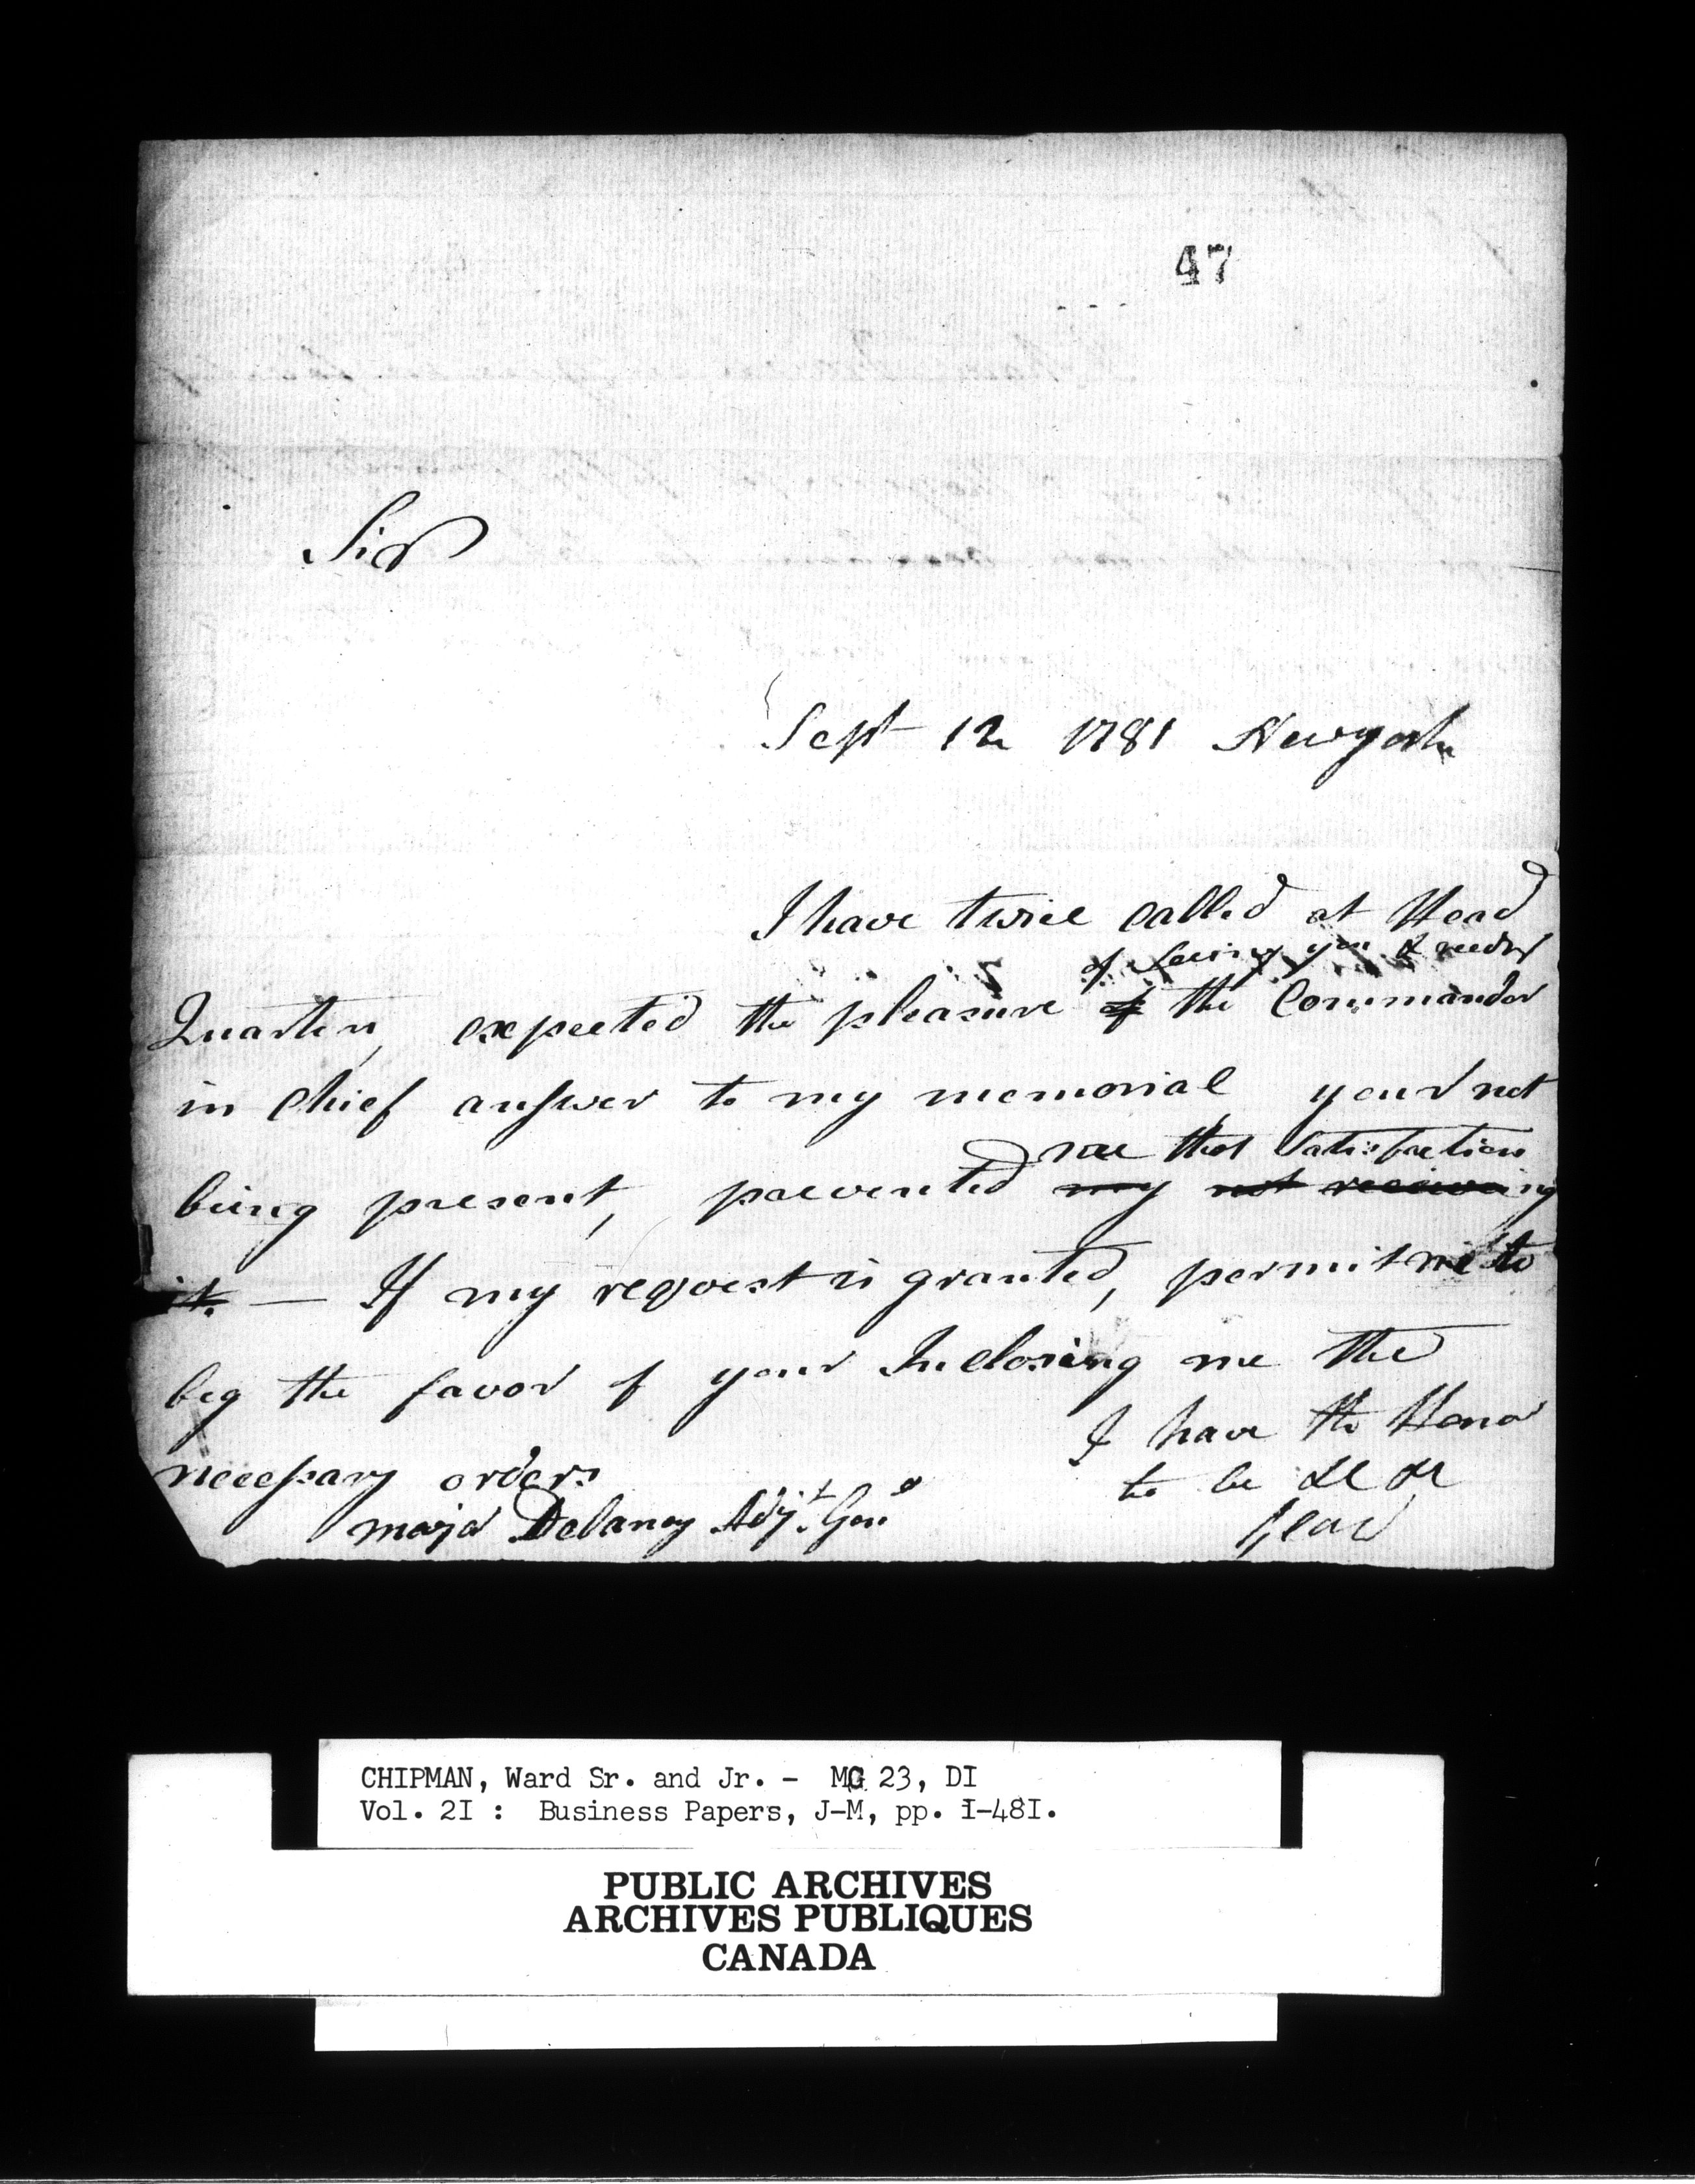 47
Sir
Sept 12 1781 Newyork
I have twice called at Head
of seeing you &
Quarters, expected the pleasure of the Commander
in Chief answer to my memorial, your not
me that Satisfaction
being present, prevented my not receiving
it. — If my request is granted, permit me to
beg the favor of your Inclosing me the
I have the Honor
necessary orders
to be &c &c
major Delancy Adjt. Genl
CHIPMAN, Ward Sr. and Jr. - MG 23, DI
Vol. 2I : Business Papers, J-M, pp. I-48I.
PUBLIC ARCHIVES
ARCHIVES PUBLIQUES
CANADA